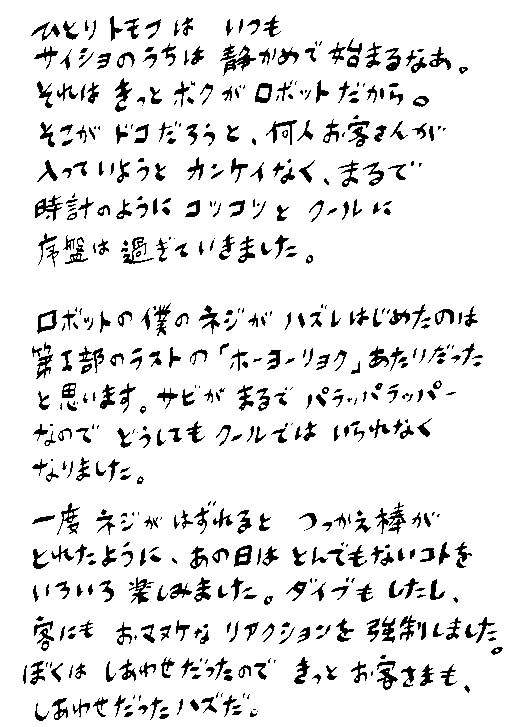 ひとりトモフは いつも
サイショのうちは 静かめで始まるなあ。
それは きっと ボクが ロボットだから。
そこが ドコだろうと、何人お客さんが
入っていようと カンケイなく、まるで
時計のように コツコツと クールに
序盤は 過ぎていきました。
ロボットの 僕の ネジが ハズレはじめたのは
第I部のラストの「ホーヨーリョク」あたりだった
と思います。サビが まるで パラッパラッパー
なので どうしても クールでは いられなく
なりました。
一度 ネジが はずれると つっかえ棒が
とれたように、あの日は とんでもないコトを
いろいろ 楽しみました。ダイブも したし、
客にも おマヌケな リアクションを 強制しました。
ぼくは しあわせだったので きっと お客さまも、
しあわせだったハズだ。